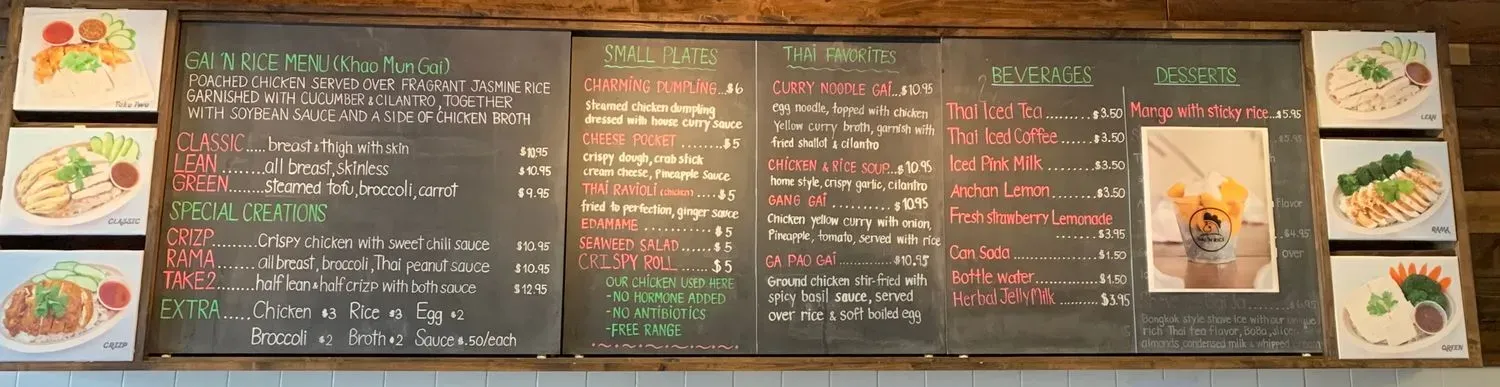 Take Two
CLASSIC
CRIZP
GAI 'N RICE MENU (Khao Mun Gai)
POACHED CHICKEN SERVED OVER FRAGRANT JASMINE RICE
GARNISHED WITH CUCUMBER & CILANTRO, TOGETHER
WITH SOYBEAN SAUCE AND A SIDE OF CHICKEN BROTH
CLASSIC.....breast & thigh with skin $10.95
LEAN........all breast, skinless $10.95
GREEN........steamed tofu, broccoli, carrot $9.95
SPECIAL CREATIONS
CRIZP.........Crispy chicken with sweet chili sauce $10.95
RAMA........all breast, broccoli, Thai peanut sauce $10.95
TAKE2.......half lean & half crizp with both sauce $12.95
EXTRA.....Chicken $3 Rice $3 Egg $2
Broccoli $2 Broth $2 Sauce $.50/each
SMALL PLATES
CHARMING DUMPLING...$6
Steamed chicken dumpling
dressed with house curry sauce
CHEESE POCKET........$5
crispy dough, crab stick
cream cheese, Pineapple Sauce
THAI RAVIOLI (chicken)....$5
fried to perfection, ginger sauce
EDAMAME............$5
SEAWEED SALAD.....$5
CRISPY ROLL......$5
OUR CHICKEN USED HERE
-NO HORMONE ADDED
-NO ANTIBIOTICS
-FREE RANGE
THAI FAVORITES
CURRY NOODLE GAI..$10.95
egg noodle, topped with chicken
Yellow curry broth, garnish with
fried shallot & cilantro
CHICKEN & RICE SOUP...$10.95
home style, crispy garlic, cilantro
GANG GAI..........$10.95
Chicken yellow curry with onion,
Pineapple, tomato, served with rice
GA PAO GAI..............$10.95
Ground chicken stir-fried with
spicy basil sauce, served
over rice & soft boiled egg
BEVERAGES
Thai Iced Tea.........$3.50
Thai Iced Coffee.......$3.50
Iced Pink Milk.........$3.50
Anchan Lemon........$3.50
Fresh strawberry Lemonade
............$3.95
Can Soda............$1.50
Bottle water..........$1.50
Herbal Jelly Milk.........$3.95
DESSERTS
Mango with sticky rice...$5.95
GAI 'N RICE
Flavor
$4.95
over
Bongkok style shave ice with our unique
rich Thai tea flavor, Boba, slice
almonds, condensed milk & whipped cream
LEAN
RAMA
GREEN